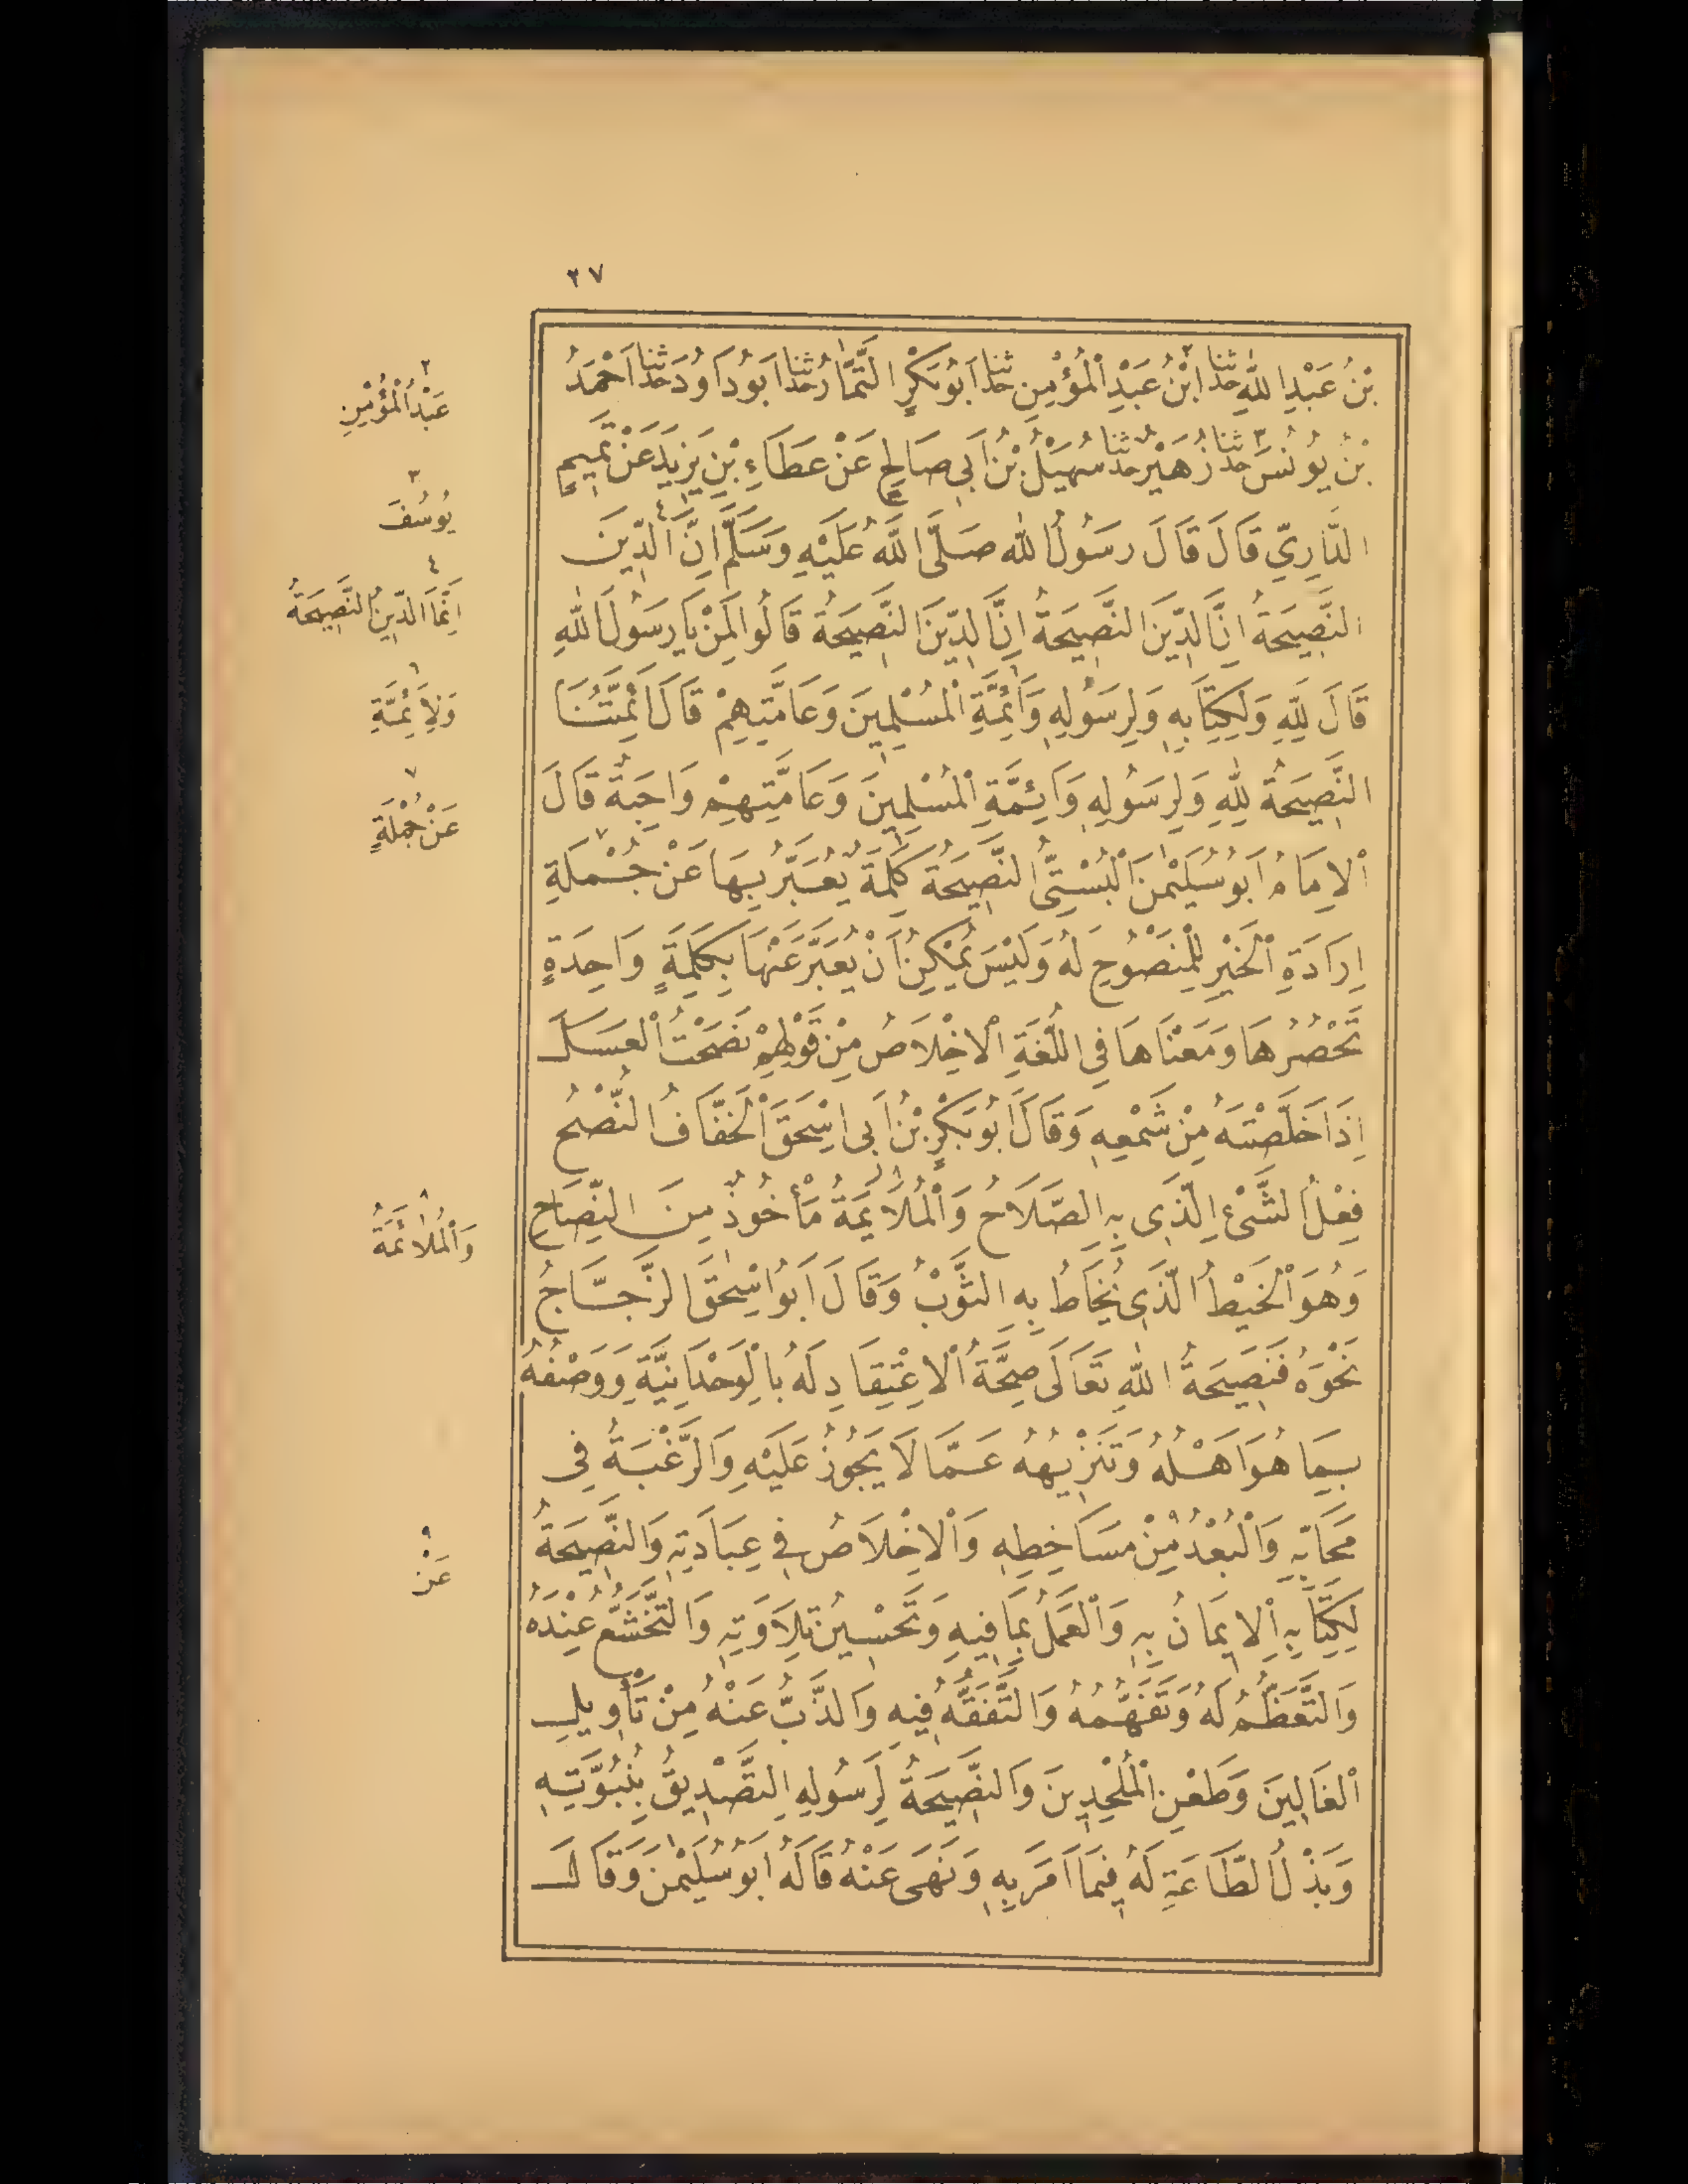 ٢٧
بْنُ عَبْدِ اللّٰهِ حدثنا ابْنُ عَبْدِ الْمُؤْمِنِ حدثنا اَبُو بَكْرٍ التَّمَّارُ حدثنا اَبُو دَاوُدَ حدثنا اَحْمَدُ
بْنُ يُونُسَ حدثنا زُهَيْرٌ حدثنا سُهَيْلُ بْنُ اَبِى صَالِحٍ عَنْ عَطَاءِ بْنِ يَزِيدَ عَنْ تَمِيمٍ
الدَّارِىِّ قَالَ قَالَ رَسُولُ اللّٰهِ صَلَّى اللّٰهُ عَلَيْهِ وَسَلَّمَ اِنَّ الدِّينَ
النَّصِيحَةُ اِنَّ الدِّينَ النَّصِيحَةُ اِنَّ الدِّينَ النَّصِيحَةُ قَالُوا لِمَنْ يَا رَسُولَ اللّٰهِ
قَالَ لِلّٰهِ وَلِكِتَابِهِ وَلِرَسُولِهِ وَاَئِمَّةِ الْمُسْلِمِينَ وَعَامَّتِهِمْ قَالَ اَئِمَّتُنَا
النَّصِيحَةُ لِلّٰهِ وَلِرَسُولِهِ وَاَئِمَّةِ الْمُسْلِمِينَ وَعَامَّتِهِمْ وَاجِبَةٌ قَالَ
الْاِمَامُ اَبُو سُلَيْمٰنَ الْبُسْتِىُّ النَّصِيحَةُ كَلِمَةٌ يُعَبَّرُ بِهَا عَنْ جُمْلَةِ
اِرَادَةِ الْخَيْرِ لِلْمَنْصُوحِ لَهُ وَلَيْسَ يُمْكِنُ اَنْ يُعَبَّرَ عَنْهَا بِكَلِمَةٍ وَاحِدَةٍ
تَحْصُرُهَا وَمَعْنَاهَا فِى اللُّغَةِ الْاِخْلَاصُ مِنْ قَوْلِهِمْ نَصَحْتُ الْعَسَلَ
اِذَا خَلَّصْتَهُ مِنْ شَمْعِهِ وَقَالَ اَبُو بَكْرِ بْنُ اَبِى اِسْحٰقَ الْخَفَّافُ النُّصْحُ
فِعْلُ الشَّىْءِ الَّذِى بِهِ الصَّلَاحُ وَالْمُلَايَمَةُ مَأْخُوذٌ مِنَ النِّصَاحِ
وَهُوَ الْخَيْطُ الَّذِى يُخَاطُ بِهِ الثَّوْبُ وَقَالَ اَبُو اِسْحٰقَ الزَّجَّاجُ
نَحْوَهُ فَنَصِيحَةُ اللّٰهِ تَعَالَى صِحَّةُ الْاِعْتِقَادِ لَهُ بِالْوَحْدَانِيَّةِ وَوَصْفُهُ
بِمَا هُوَ اَهْلُهُ وَتَنْزِيهُهُ عَمَّا لَا يَجُوزُ عَلَيْهِ وَالرَّغْبَةُ فِى
مَحَابِّهِ وَالْبُعْدُ مِنْ مَسَاخِطِهِ وَالْاِخْلَاصُ فِى عِبَادَتِهِ وَالنَّصِيحَةُ
لِكِتَابِهِ الْاِيمَانُ بِهِ وَالْعَمَلُ بِمَا فِيهِ وَتَحْسِينُ تِلَاوَتِهِ وَالتَّخَشُّعُ عِنْدَهُ
وَالتَّعَظُّمُ لَهُ وَتَفَهُّمُهُ وَالتَّفَقُّهُ فِيهِ وَالذَّبُّ عَنْهُ مِنْ تَأْوِيلِ
الْغَالِينَ وَطَعْنِ الْمُلْحِدِينَ وَالنَّصِيحَةُ لِرَسُولِهِ التَّصْدِيقُ بِنُبُوَّتِهِ
وَبَذْلُ الطَّاعَةِ لَهُ فِيمَا اَمَرَ بِهِ وَنَهَى عَنْهُ قَالَهُ اَبُو سُلَيْمٰنَ وَقَالَ
٢
عَبْدُ الْمُؤْمِنِ
٣
يُوسُفَ
٤
اِنَّمَا الدِّينُ النَّصِيحَةُ
٦
وَلِاَئِمَّةِ
٧
عَنْ جُمْلَةٍ
٨
وَالْمُلَائَمَةُ
٩
عَنْ